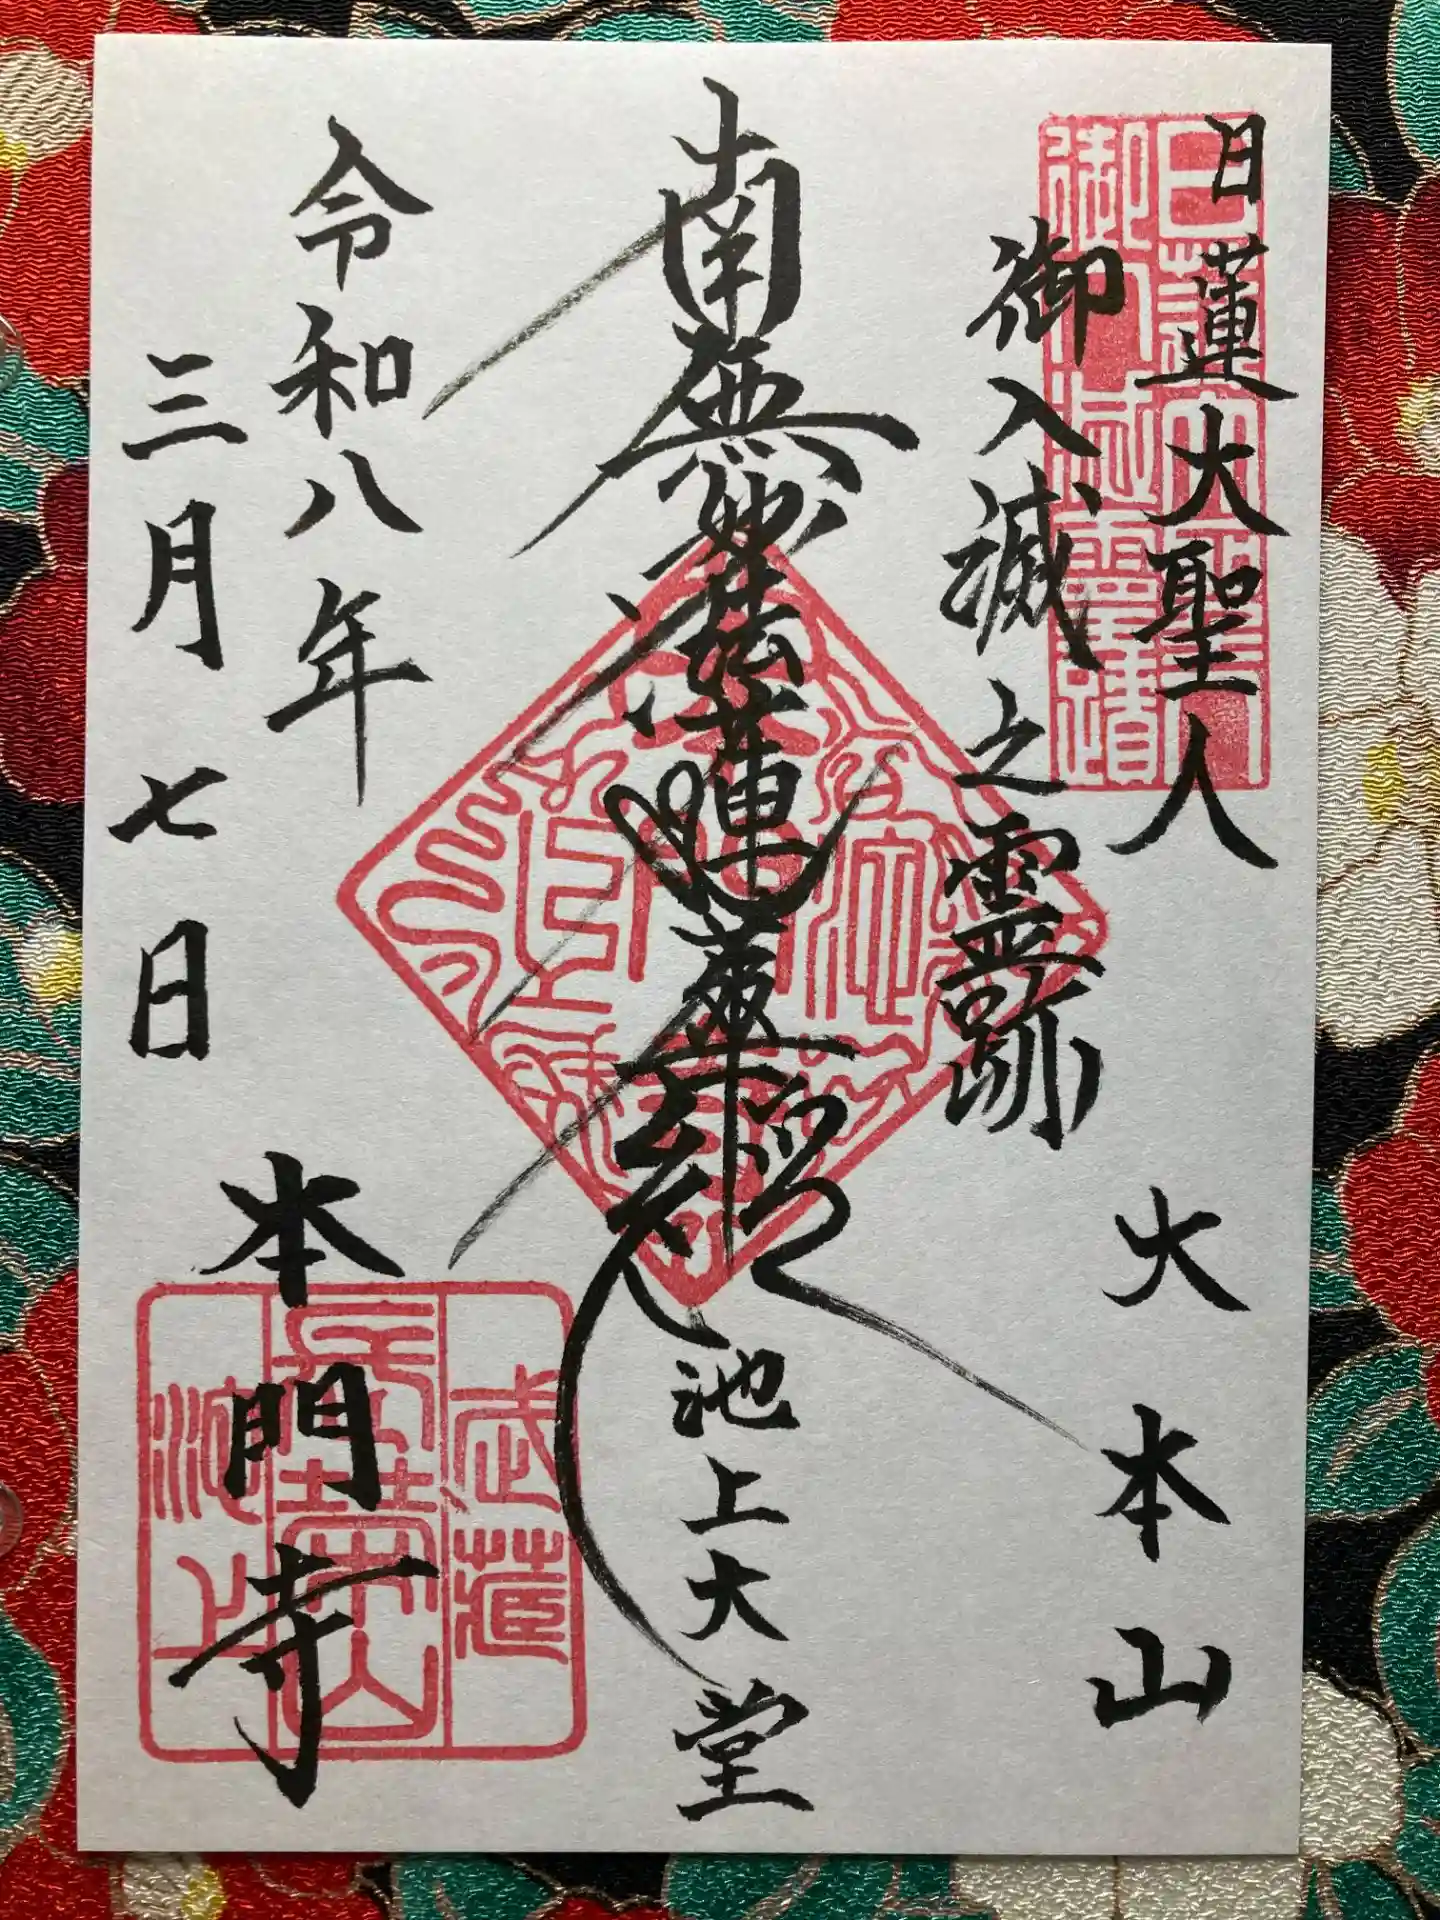 日蓮大聖人
御入滅之霊跡
大本山
南無妙法蓮華経
池上大堂
令和八年
三月七日
本門寺
日蓮大聖人
御入滅霊蹟
武蔵
長栄山
池上